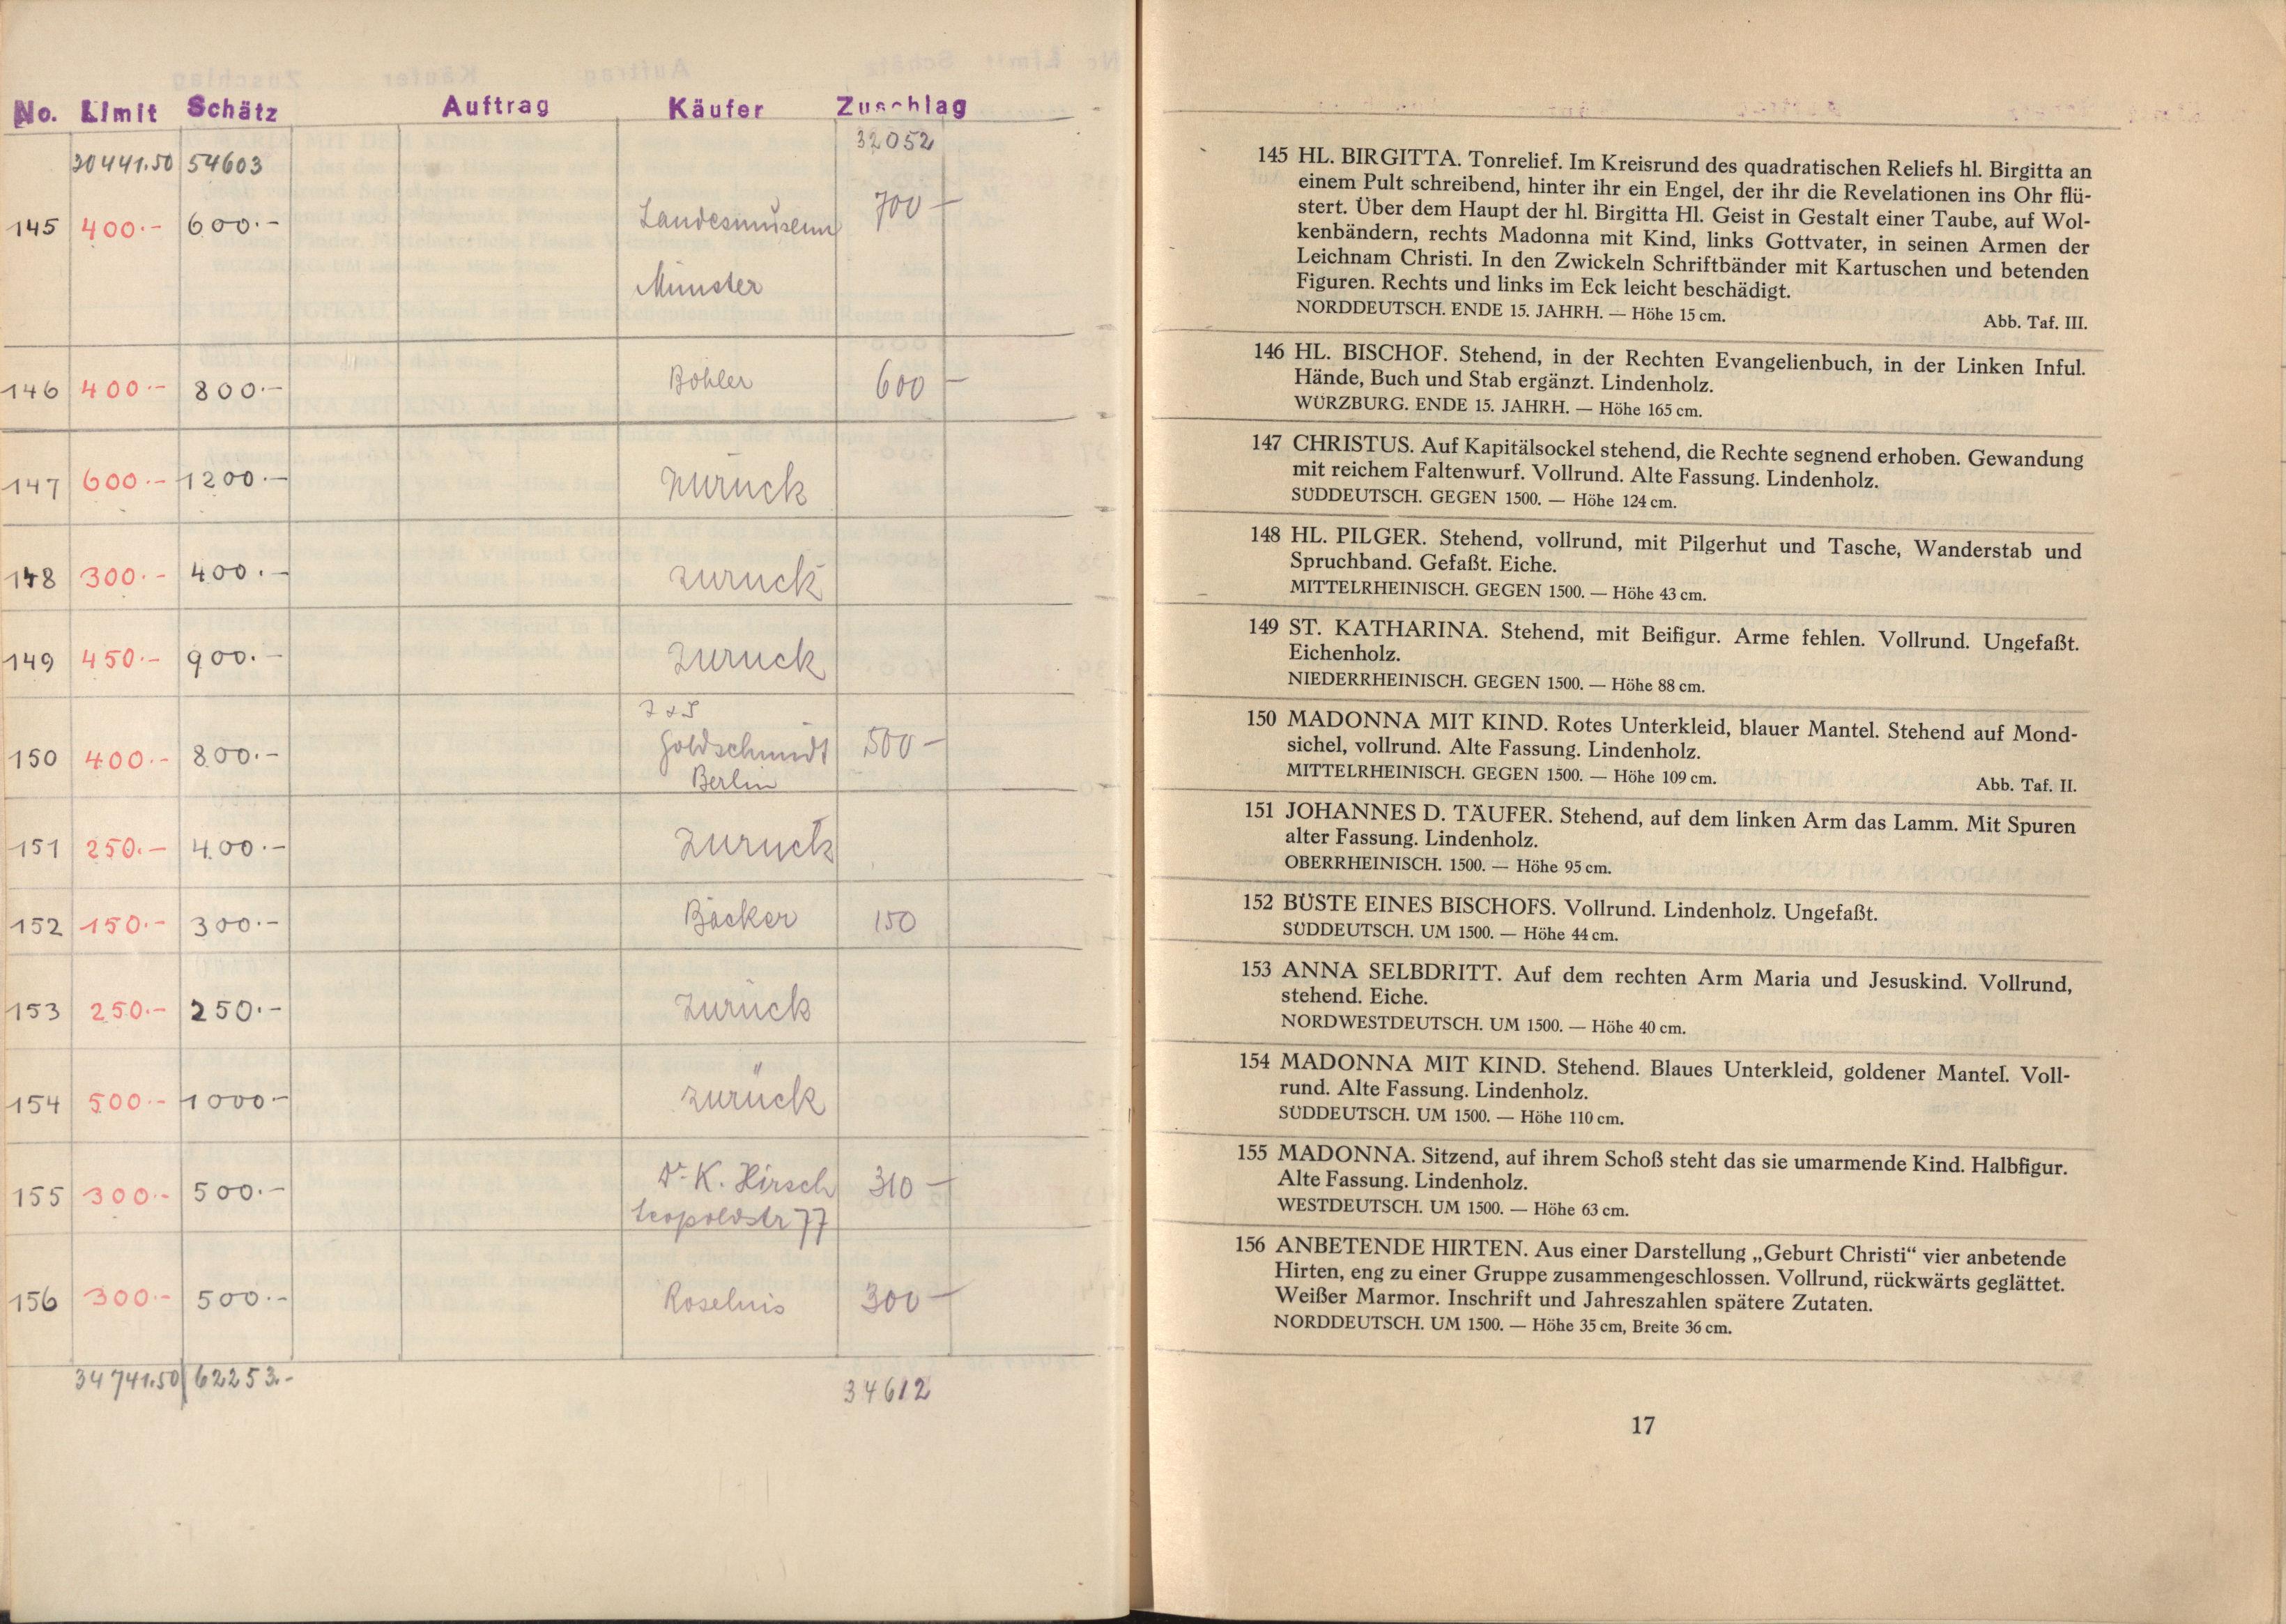 No. Limit Schätz Auftrag Käufer Zuschlag
32052
30441.50 54603
145 400.- 600.- Landesmuseum 700 -
Münster
146 400.- 800.- Böhler 600 -
147 600.- 1200.- zurück
148 300.- 400.- zurück
149 450.- 900.- zurück
150 400.- 800.- Goldschmidt 500 -
Berlin
151 250.- 400.- zurück
152 150.- 300.- Böcker 150
153 250.- 250.- zurück
154 500.- 1000.- zurück
155 300.- 500.- Dr. K. Hirsch 310 -
Leopoldstr 77
156 300.- 500.- 300 -
34741.50 62253.-
34612
145 HL. BIRGITTA. Tonrelief. Im Kreisrund des quadratischen Reliefs hl. Birgitta an
einem Pult schreibend, hinter ihr ein Engel, der ihr die Revelationen ins Ohr flü-
stert. Über dem Haupt der hl. Birgitta Hl. Geist in Gestalt einer Taube, auf Wol-
kenbändern, rechts Madonna mit Kind, links Gottvater, in seinen Armen der
Leichnam Christi. In den Zwickeln Schriftbänder mit Kartuschen und betenden
Figuren. Rechts und links im Eck leicht beschädigt.
NORDDEUTSCH. ENDE 15. JAHRH. — Höhe 15 cm. Abb. Taf. III.
146 HL. BISCHOF. Stehend, in der Rechten Evangelienbuch, in der Linken Inful.
Hände, Buch und Stab ergänzt. Lindenholz.
WÜRZBURG. ENDE 15. JAHRH. — Höhe 165 cm.
147 CHRISTUS. Auf Kapitälsockel stehend, die Rechte segnend erhoben. Gewandung
mit reichem Faltenwurf. Vollrund. Alte Fassung. Lindenholz.
SÜDDEUTSCH. GEGEN 1500. — Höhe 124 cm.
148 HL. PILGER. Stehend, vollrund, mit Pilgerhut und Tasche, Wanderstab und
Spruchband. Gefaßt. Eiche.
MITTELRHEINISCH. GEGEN 1500. — Höhe 43 cm.
149 ST. KATHARINA. Stehend, mit Beifigur. Arme fehlen. Vollrund. Ungefaßt.
Eichenholz.
NIEDERRHEINISCH. GEGEN 1500. — Höhe 88 cm.
150 MADONNA MIT KIND. Rotes Unterkleid, blauer Mantel. Stehend auf Mond-
sichel, vollrund. Alte Fassung. Lindenholz.
MITTELRHEINISCH. GEGEN 1500. — Höhe 109 cm. Abb. Taf. II.
151 JOHANNES D. TÄUFER. Stehend, auf dem linken Arm das Lamm. Mit Spuren
alter Fassung. Lindenholz.
OBERRHEINISCH. 1500. — Höhe 95 cm.
152 BÜSTE EINES BISCHOFS. Vollrund. Lindenholz. Ungefaßt.
SÜDDEUTSCH. UM 1500. — Höhe 44 cm.
153 ANNA SELBDRITT. Auf dem rechten Arm Maria und Jesuskind. Vollrund,
stehend. Eiche.
NORDWESTDEUTSCH. UM 1500. — Höhe 40 cm.
154 MADONNA MIT KIND. Stehend. Blaues Unterkleid, goldener Mantel. Voll-
rund. Alte Fassung. Lindenholz.
SÜDDEUTSCH. UM 1500. — Höhe 110 cm.
155 MADONNA. Sitzend, auf ihrem Schoß steht das sie umarmende Kind. Halbfigur.
Alte Fassung. Lindenholz.
WESTDEUTSCH. UM 1500. — Höhe 63 cm.
156 ANBETENDE HIRTEN. Aus einer Darstellung „Geburt Christi“ vier anbetende
Hirten, eng zu einer Gruppe zusammengeschlossen. Vollrund, rückwärts geglättet.
Weißer Marmor. Inschrift und Jahreszahlen spätere Zutaten.
NORDDEUTSCH. UM 1500. — Höhe 35 cm, Breite 36 cm.
17